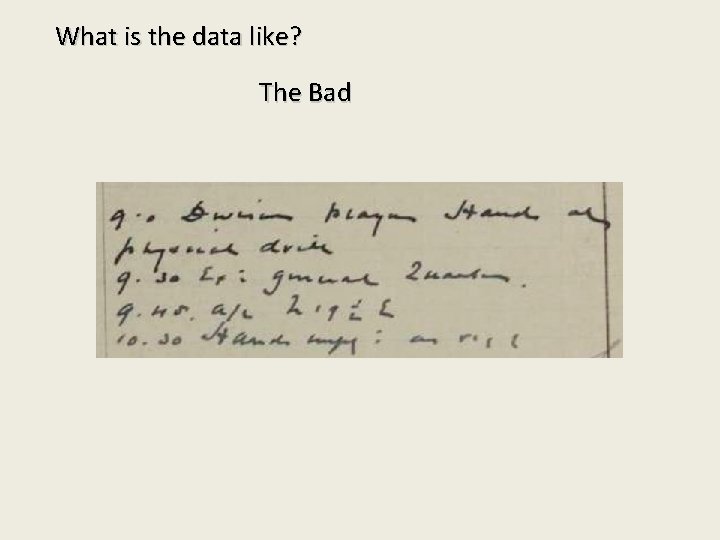 What is the data like?
The Bad
9.0 Division prayers Hands at
physical drill
9.30 Ex: general Quarters.
9.45. a/c
10.30 Hands empy: as req